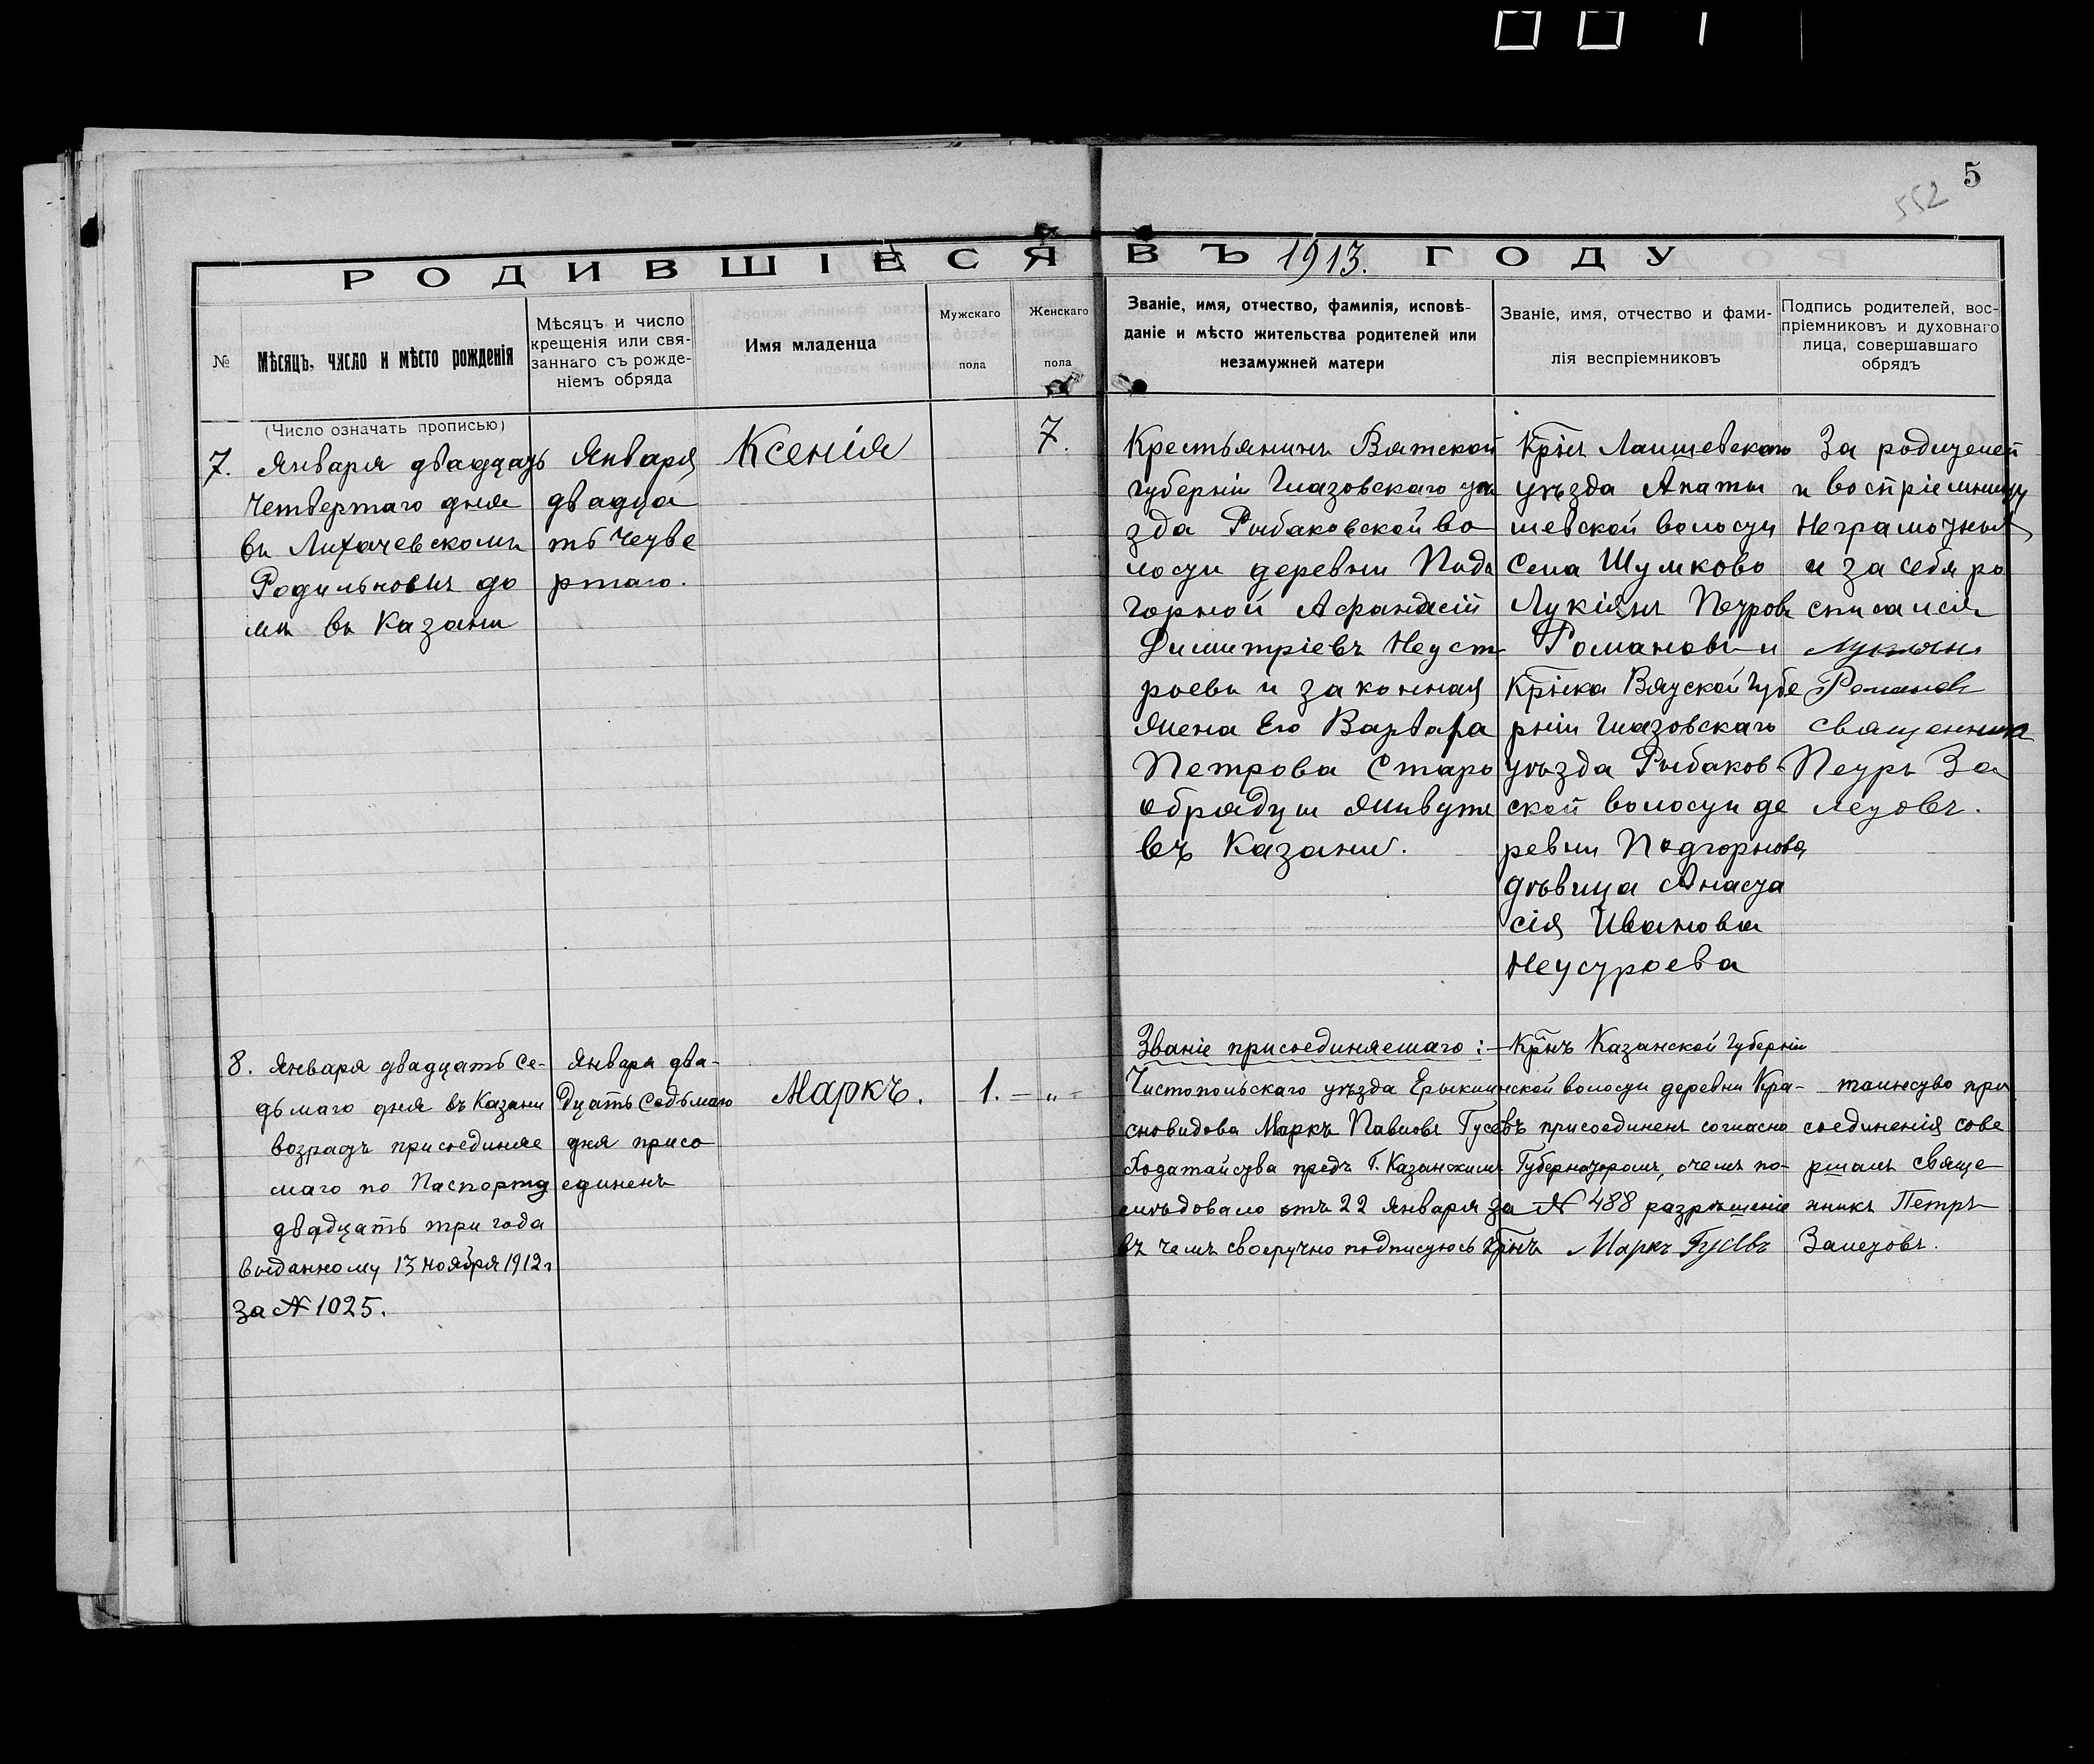 5
552
РОДИВШІЕСЯ ВЪ 1913. ГОДУ
№
Мѣсяцъ, число и мѣсто рожденія
Мѣсяцъ и число
крещенія или свя-
заннаго съ рожде-
ніемъ обряда
Имя младенца
Мужскаго
пола
Женскаго
пола
Званіе, имя, отчество, фамилія, исповѣ-
даніе и мѣсто жительства родителей или
незамужней матери
Званіе, имя, отчество и фами-
лія веспріемниковъ
Подпись родителей, вос-
пріемниковъ и духовнаго
лица, совершавшаго
обрядъ
(Число означать прописью)
7. Января двадцать
четвертаго дня
въ Лихачевскомъ
Родильновъ до
мѣ въ Казани
Января
двадца
ть четве
ртаго.
Ксенія
7.
Крестьянинъ Вятской
губерніи Глазовскаго уѣ
зда Рыбаковской во
лости деревни Подъ
горной Афанасій
Димитріевъ Неуст
роевъ и законная
жена Его Варвара
Петрова Старо
обрядцы живутъ
въ Казани.
Крн̃ъ Лаишевскаго
уѣзда Анаты
шевской волости
Села Шумково
Лукіянъ Петровъ
Романовъ и
Кр̃нка Вятской губе
рніи Глазовскаго
уѣзда Рыбаков-
ской волости де
ревни Подгорнова
дѣвица Анаста
сія Иванова
Неустроева
За родителей
и воспріемницу
Неграмотныхъ
и за себя ро
списался
Лукіянъ
Романовъ
священника
Петръ За
летовъ.
8. Января двадцать се-
дьмаго дня въ Казани
возрадъ присоединяе
маго по Паспорту
двадцать три года
выданному 13 ноября 1912 г
за № 1025.
Января два-
дцать седьмаго
дня присо
единенъ
Маркъ.
1. — „ -
Званіе присоединяемаго :— Кр̃нъ Казанской губерніи
Чистопольскаго уѣзда Ерыклинской волости деревни Кра-
сновидова Маркъ Павловъ Гусевъ присоединенъ согласно
Ходатайства предъ Г. Казанскимъ Губернаторомъ, очемъ по-
слѣдовало отъ 22 Января за № 488 разрѣшеніе
въ чемъ своеручно подписуюсь кр̃нъ Маркъ Гусевъ
таинство при
соединенія сове
ршалъ свяще
нникъ Петръ
Залетовъ.